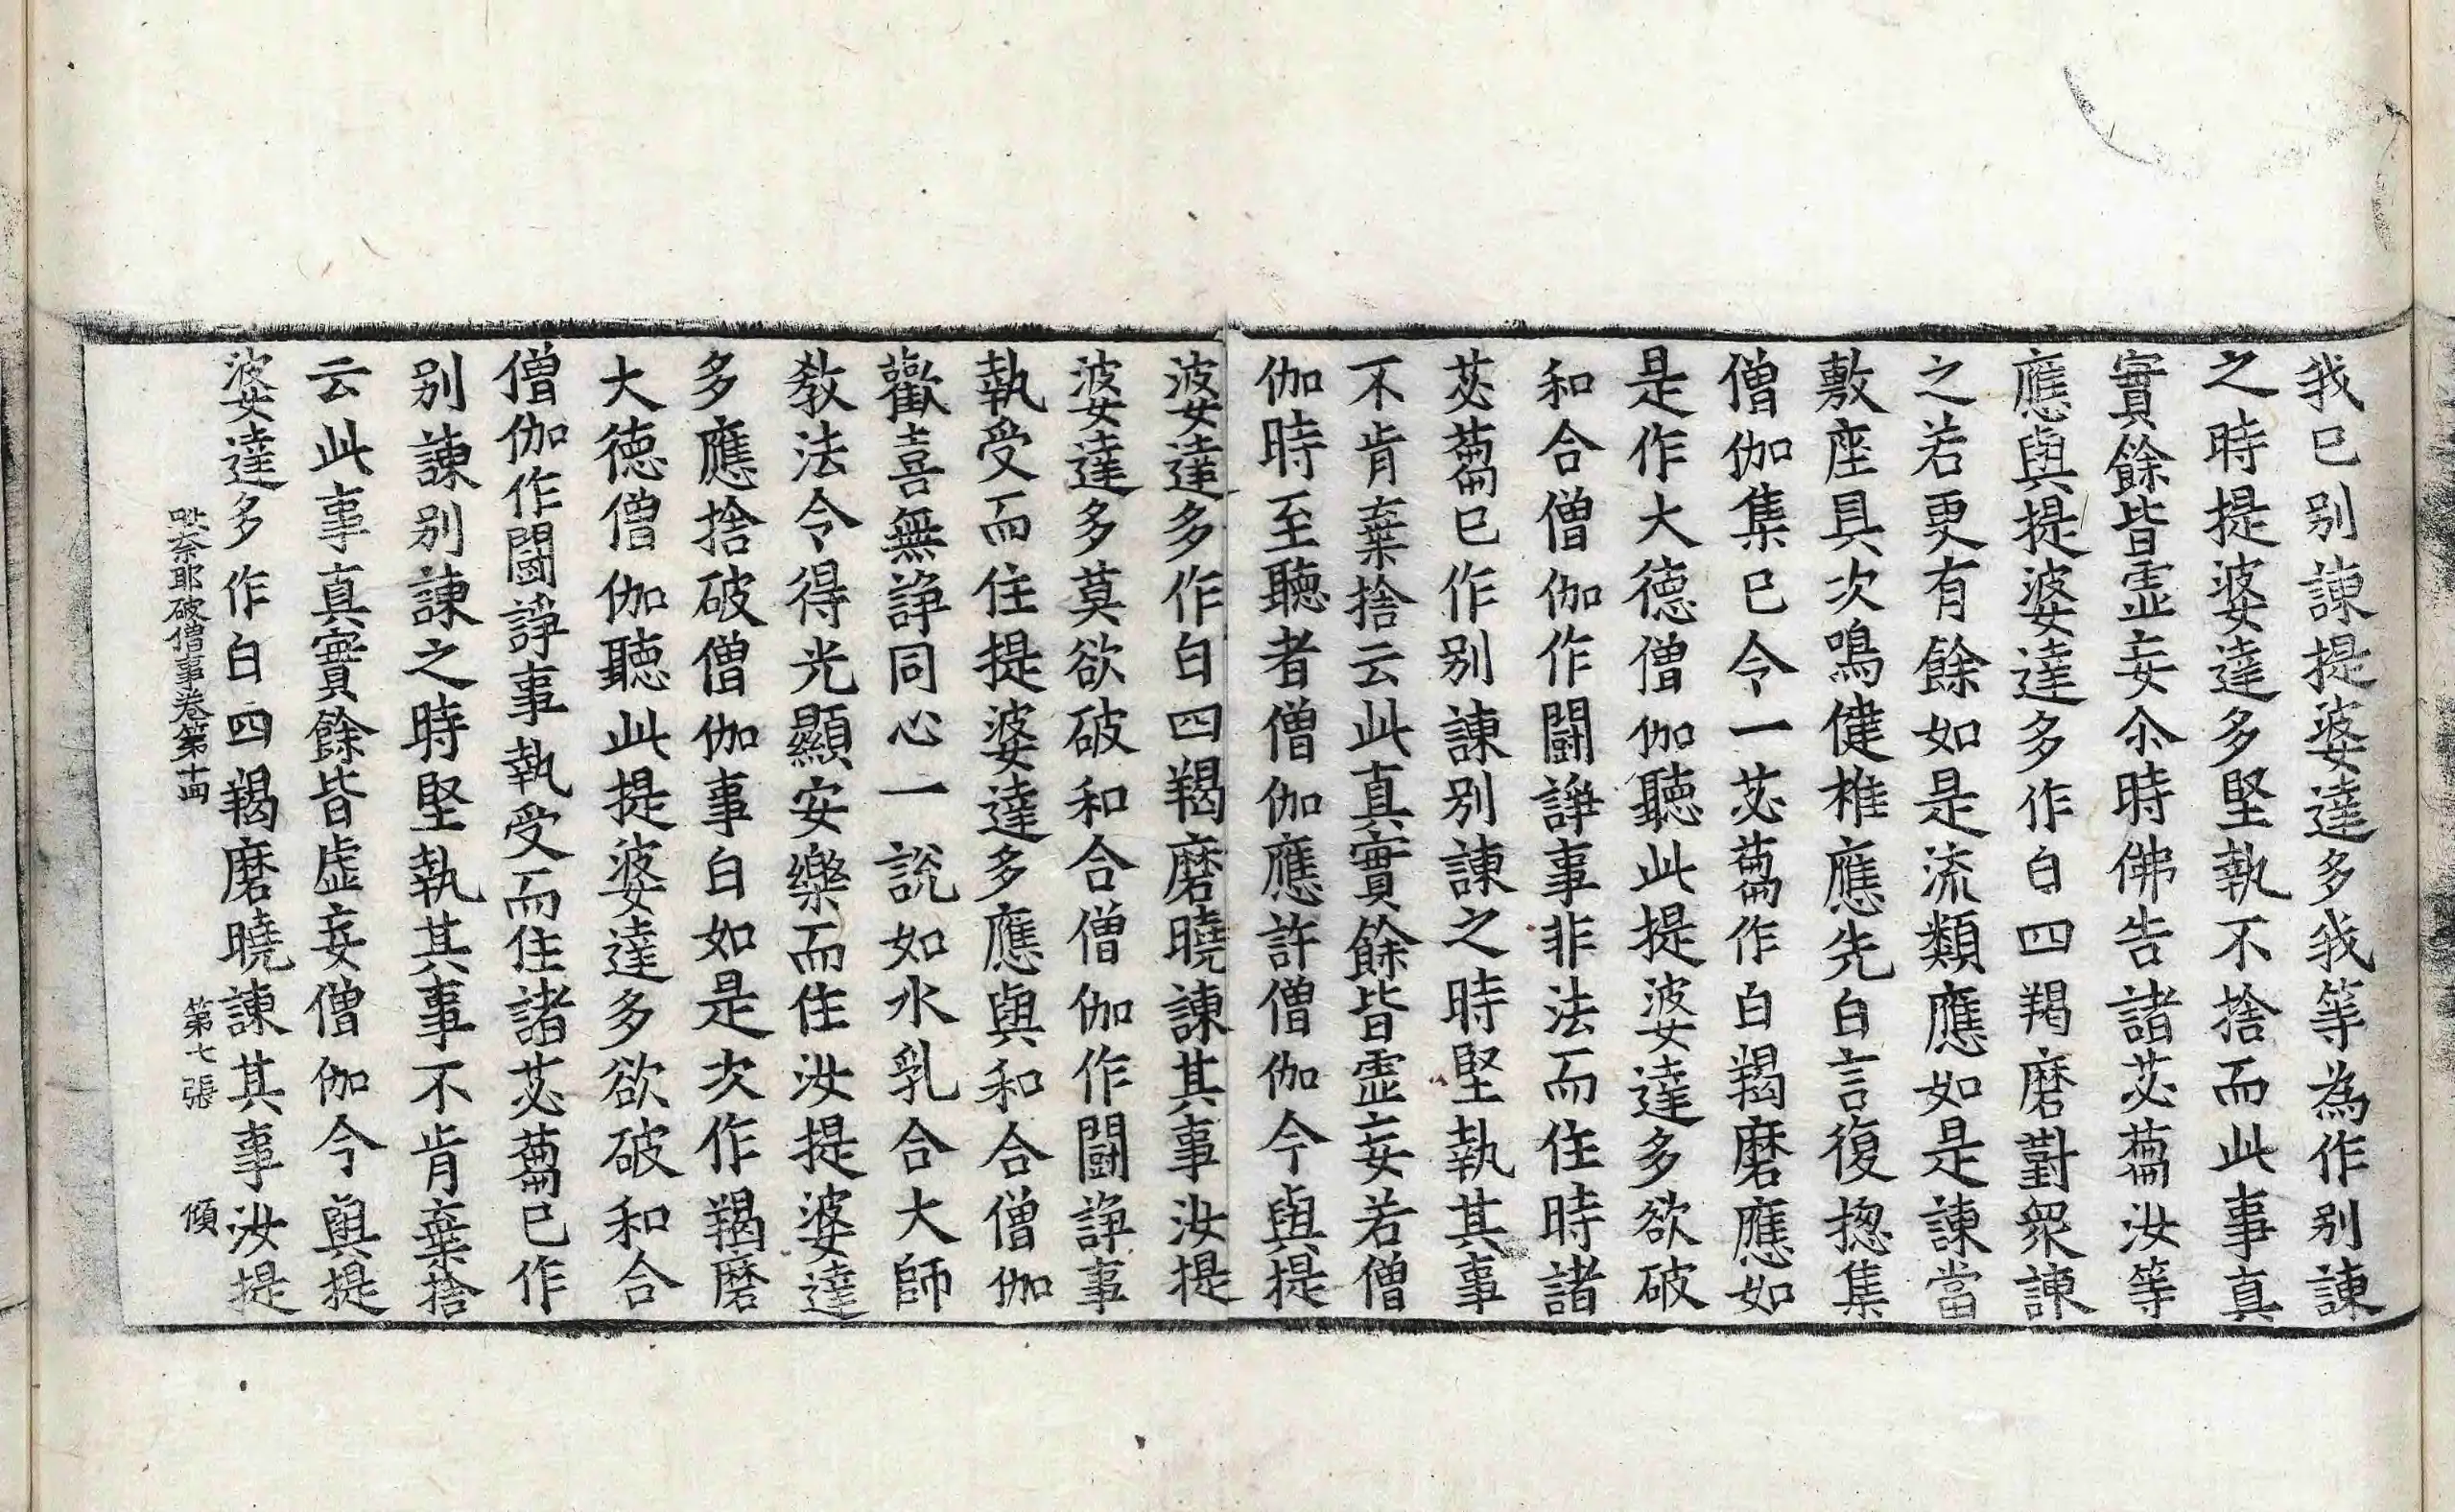 我已別諫提婆達多我等為作別諫
之時提婆達多堅執不捨而此事真
實餘皆虛妄尒時佛告諸苾蒭汝等
應與提婆達多作白四羯磨對衆諫
之若更有餘如是流類應如是諫當
敷座具次鳴健椎應先白言復揔集
僧伽集已令一苾蒭作白羯磨應如
是作大德僧伽聽此提婆達多欲破
和合僧伽作鬪諍事非法而住時諸
苾蒭已作別諫別諫之時堅執其事
不肯棄捨云此真實餘皆虛妄若僧
伽時至聽者僧伽應許僧伽今與提
婆達多作白四羯磨曉諫其事汝提
婆達多莫欲破和合僧伽作鬪諍事
執受而住提婆達多應與和合僧伽
歡喜無諍同心一說如水乳合大師
教法令得光顯安樂而住汝提婆達
多應捨破僧伽事白如是次作羯磨
大德僧伽聽此提婆達多欲破和合
僧伽作鬪諍事執受而住諸苾蒭已作
別諫別諫之時堅執其事不肯棄捨
云此事真實餘皆虛妄僧伽今與提
婆達多作白四羯磨曉諫其事汝提
毗奈耶破僧事卷第十四 第七張 傾